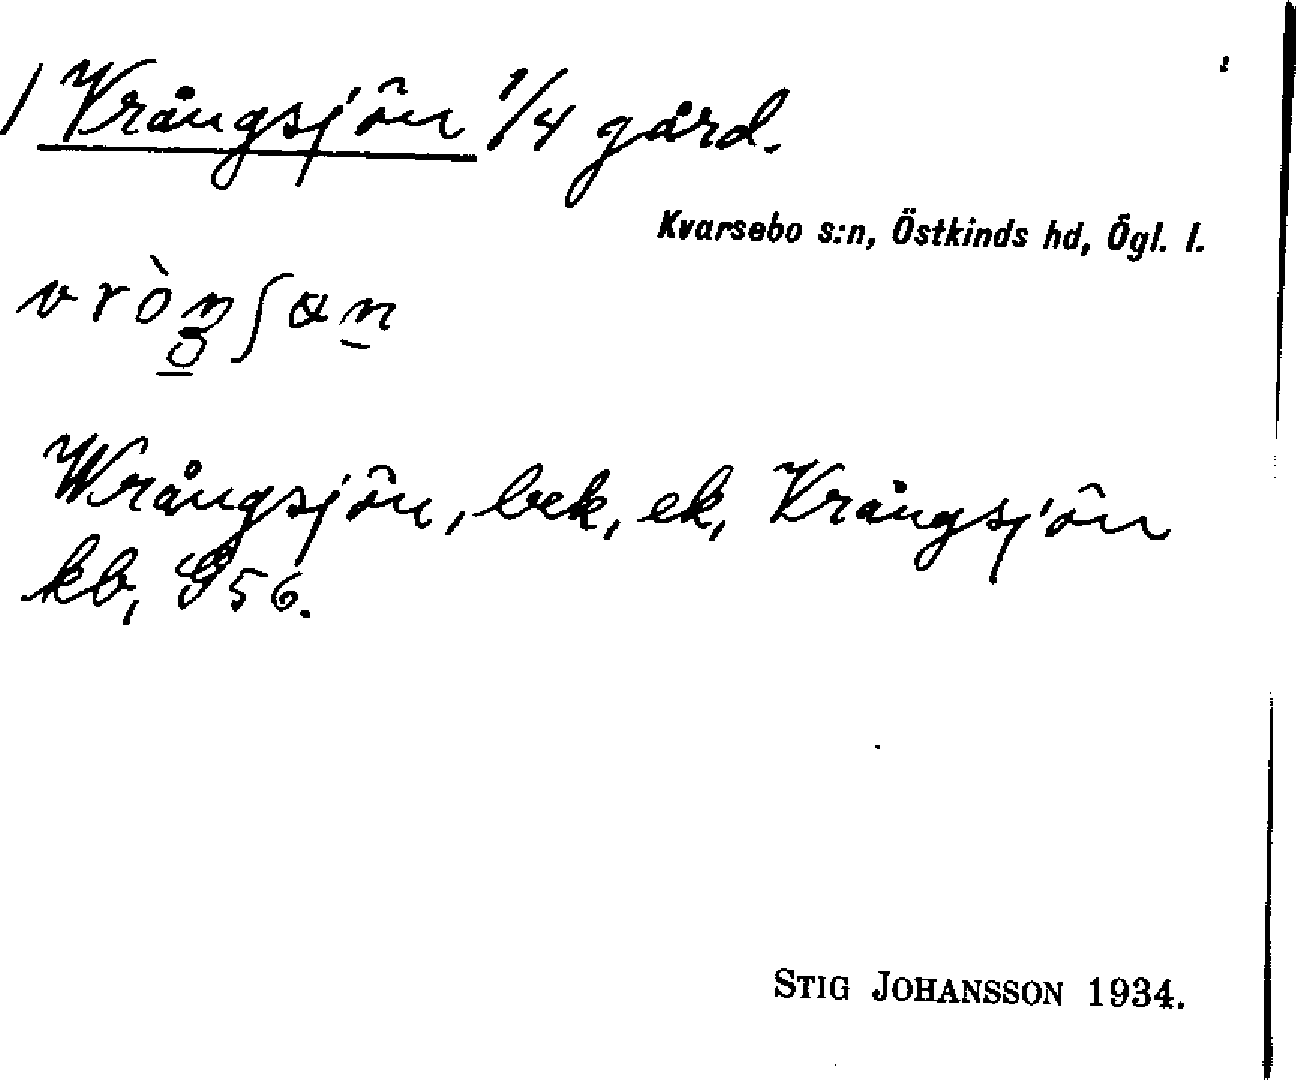 / Vrångsjön 1/4 gård.
Kvarsebo s:n, Östkinds hd, Ögl. l.
Wrångsjön, bek, ek, Vrångsjön
kb, G 56.
STIG JOHANSSON 1934.